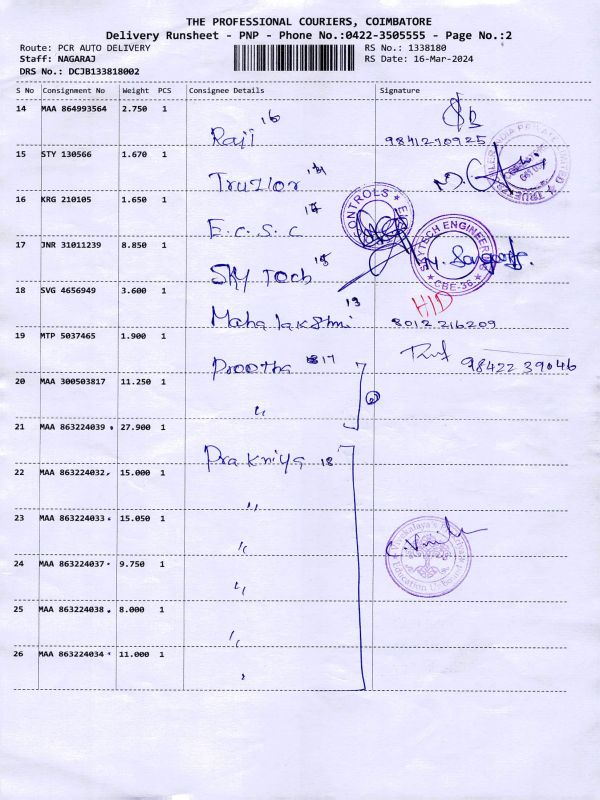 THE PROFESSIONAL COURIERS, COIMBATORE
Delivery Runsheet - PNP - Phone No.:0422-3505555 - Page No.:2
Route: PCR AUTO DELIVERY RS No.: 1338180
Staff: NAGARAJ RS Date: 16-Mar-2024
DRS No.: DCJB133818002
S No Consignment No Weight PCS Consignee Details Signature
14 MAA 864993564 2.750 1
Raji 16 9841210925
15 STY 130566 1.670 1
Truzlor
16 KRG 210105 1.650 1
E.C.S.C
CONTROLS
17 JNR 31011239 8.850 1
SKY Tech
SKYTECH ENGINEERS CBE-36
18 SVG 4656949 3.600 1
Maha lakshmi 13 8012216209
19 MTP 5037465 1.900 1
Preetha 17 98422 39046
20 MAA 300503817 11.250 1
〃
21 MAA 863224039 27.900 1
Prakriya 18
22 MAA 863224032 15.000 1
〃
23 MAA 863224033 15.050 1
〃
24 MAA 863224037 9.750 1
〃
25 MAA 863224038 8.000 1
〃
26 MAA 863224034 11.000 1
〃